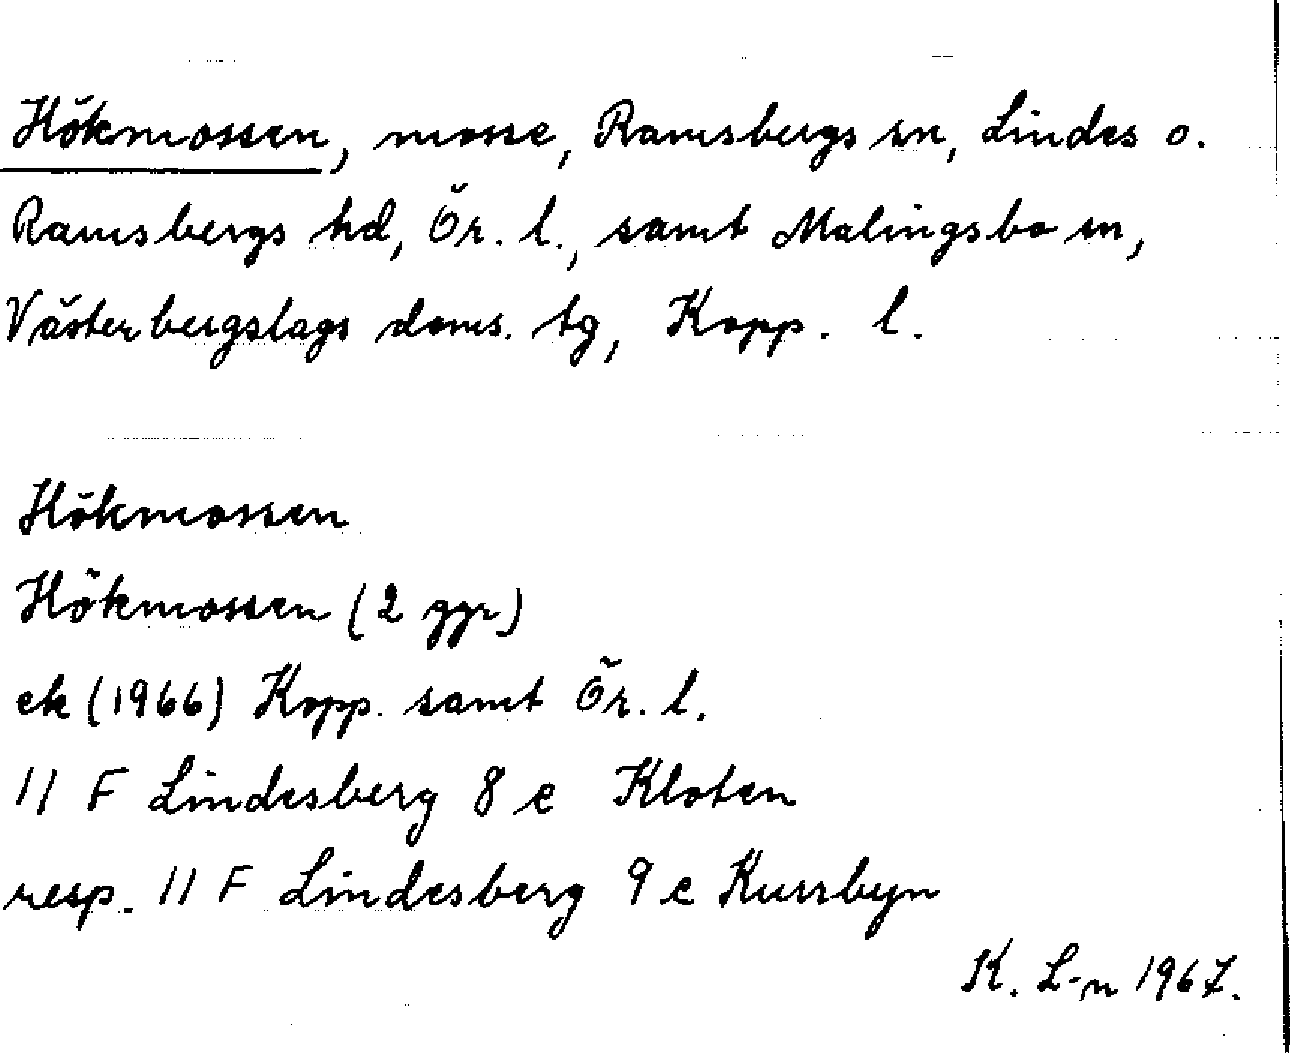 Hökmossen, mosse, Ramsbergs sn, Lindes o.
Ramsbergs hd, Ör. l., samt Malingsbo sn,
Västerbergslags doms. tg, Kopp. l.
Hökmossen
Hökmossen (2 ggr)
ek (1966) Kopp. samt Ör. l.
11 F Lindesberg 8 e Kloten
resp. 11 F Lindesberg 9 e Kursbyn
K. L-n 1967.